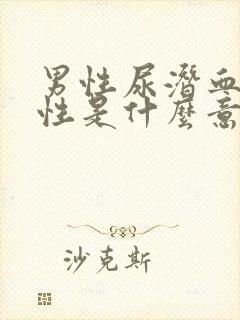 男性尿潜血
性是什麼意
沙克斯